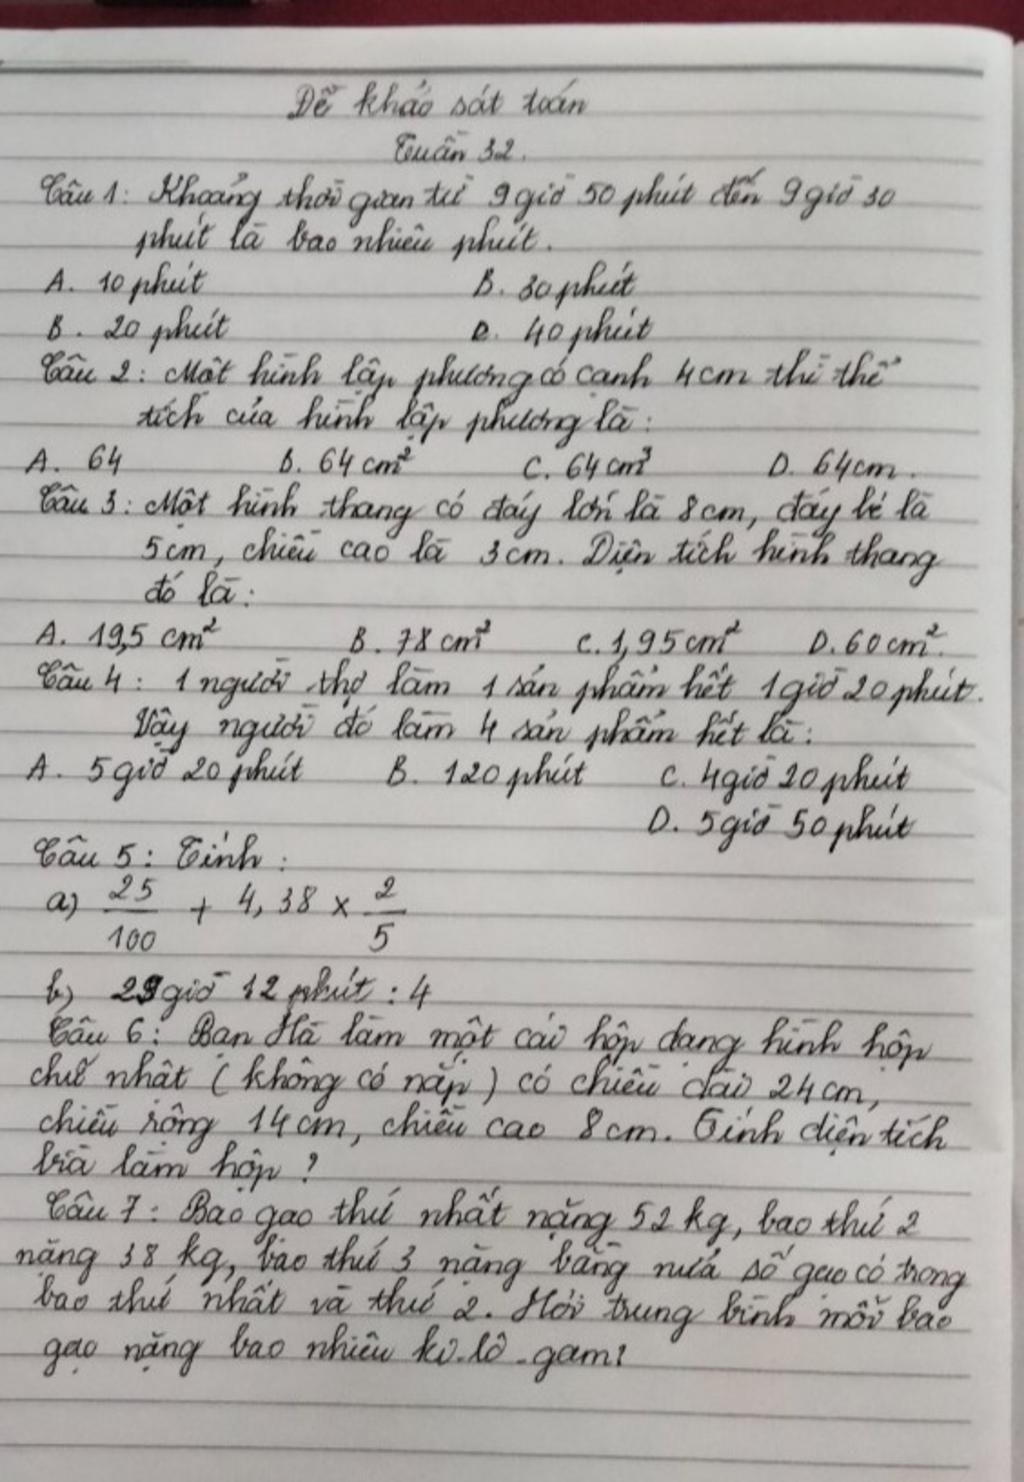 Đề khảo sát toán
Tuần 32.
Câu 1: Khoảng thời gian từ 9 giờ 50 phút đến 9 giờ 30
phút là bao nhiêu phút.
A. 10 phút B. 30 phút
B. 20 phút D. 40 phút
Câu 2: Một hình lập phương có cạnh 4cm thì thể
tích của hình lập phương là:
A. 64 B. 64 cm² C. 64 cm³ D. 64cm.
Câu 3: Một hình thang có đáy lớn là 8cm, đáy bé là
5cm, chiều cao là 3cm. Diện tích hình thang
đó là:
A. 19,5 cm² B. 78 cm² C. 1,95 cm² D. 60 cm².
Câu 4: 1 người thợ làm 1 sản phẩm hết 1 giờ 20 phút.
Vậy người đó làm 4 sản phẩm hết là:
A. 5 giờ 20 phút B. 120 phút C. 4 giờ 20 phút
D. 5 giờ 50 phút
Câu 5: Tính:
a) 25/100 + 4,38 × 2/5
b) 29 giờ 12 phút : 4
Câu 6: Bạn Hà làm một cái hộp dạng hình hộp
chữ nhật (không có nắp) có chiều dài 24 cm,
chiều rộng 14 cm, chiều cao 8 cm. Tính diện tích
bìa làm hộp?
Câu 7: Bao gạo thứ nhất nặng 52 kg, bao thứ 2
nặng 38 kg, bao thứ 3 nặng bằng nửa số gạo có trong
bao thứ nhất và thứ 2. Hỏi trung bình mỗi bao
gạo nặng bao nhiêu ki-lô-gam?